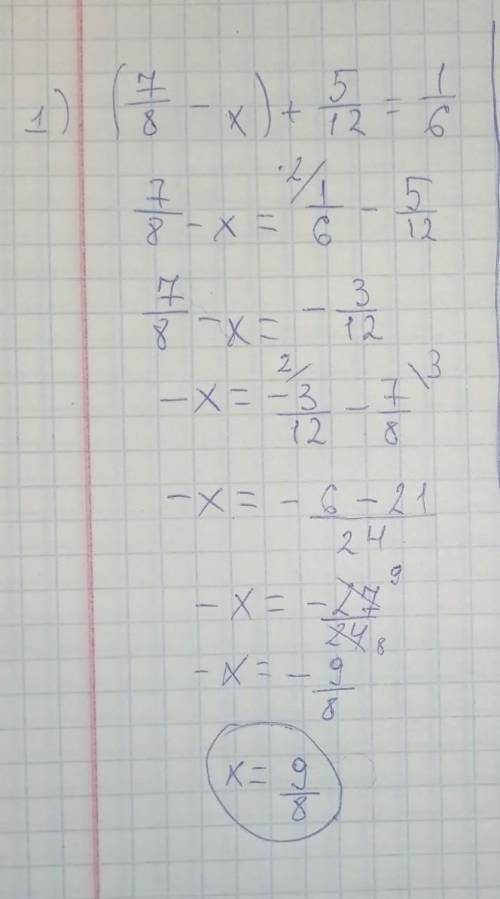 1) (7/8 - x) + 5/12 = 1/6
7/8 - x = 2/ 1/6 - 5/12
7/8 - x = - 3/12
- x = 2/ -3/12 - 7/8 \3
- x = - 6 - 21/24
- x = - 27/24 9 8
- x = - 9/8
x = 9/8